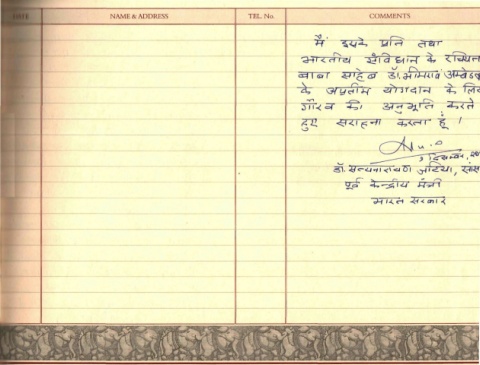 DATE NAME & ADDRESS TEL. No. COMMENTS
मैं इसके प्रति तथा
भारतीय संविधान के रचयिता
बाबा साहेब डॉ. भीमराव अम्बेडकर
के अप्रतीम योगदान के लिए
गौरव की अनुभूति करते
हुए सराहना करता हूं ।
डॉ. सत्यनारायण जटिया, सांसद
पूर्व केन्द्रीय मंत्री
भारत सरकार